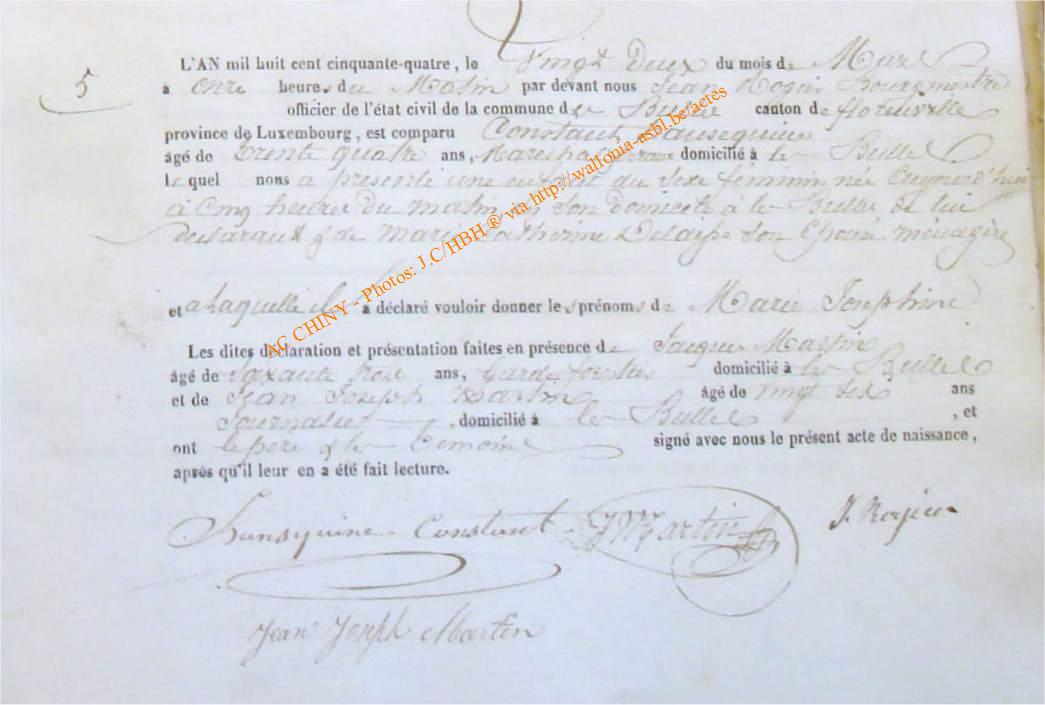 5
L'AN mil huit cent cinquante-quatre, le Vingt Deux du mois de Mars
à onze heures du Matin par devant nous Jean Rogier Bourgmestre
officier de l'état civil de la commune de Bulles canton de florenville
province de Luxembourg, est comparu Constant
âgé de trente quatre ans, Marechal domicilié à les Bulles
lequel nous a présenté une enfant du sexe féminin née aujourd'hui
à Cinq heures du matin en son domicile à les Bulles de lui
declarant & de Marie Catherine son Epouse menagère
et a laquelle il a déclaré vouloir donner les prénoms de Marie Josephine
Les dites déclaration et présentation faites en présence de Jacque Martin
âgé de Soixante trois ans, Garde forestier domicilié à les Bulles
et de Jean Joseph Martin âgé de vingt six ans
Journalier, domicilié à les Bulles, et
ont le pere & les temoins signé avec nous le présent acte de naissance,
après qu'il leur en a été fait lecture.
Constant J Martin J. Rogier
Jean Joseph Martin
AC CHINY - Photos: J.C/HBH ® via http://wallonia-asbl.be/actes